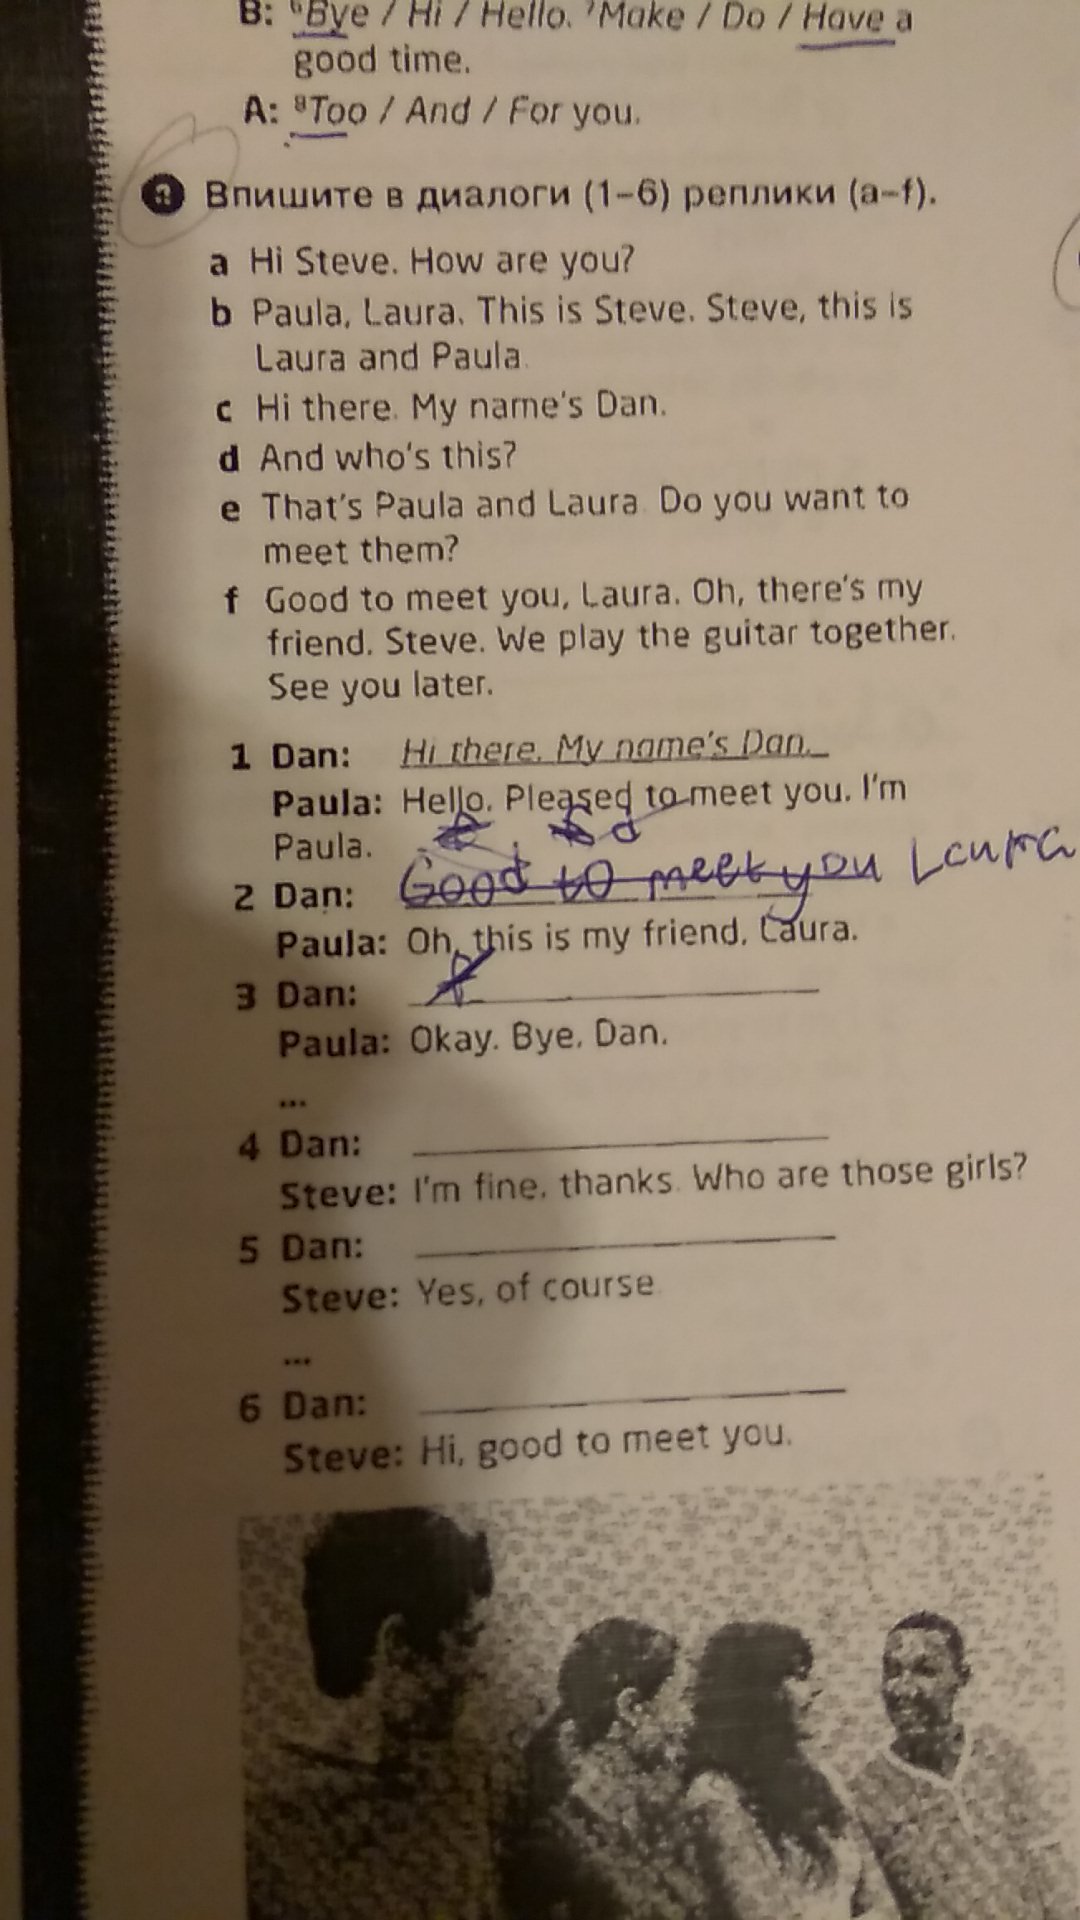 B: ⁶Bye / Hi / Hello. ⁷Make / Do / Have a
good time.
A: ⁸Too / And / For you.
3 Впишите в диалоги (1–6) реплики (a–f).
a Hi Steve. How are you?
b Paula, Laura. This is Steve. Steve, this is
Laura and Paula.
c Hi there. My name's Dan.
d And who's this?
e That's Paula and Laura. Do you want to
meet them?
f Good to meet you, Laura. Oh, there's my
friend, Steve. We play the guitar together.
See you later.
1 Dan: Hi there. My name's Dan.
Paula: Hello. Pleased to meet you. I'm
Paula.
d
2 Dan: Good to meet you Laura
Paula: Oh, this is my friend, Laura.
3 Dan:
Paula: Okay. Bye, Dan.
...
4 Dan:
Steve: I'm fine, thanks. Who are those girls?
5 Dan:
Steve: Yes, of course.
...
6 Dan:
Steve: Hi, good to meet you.